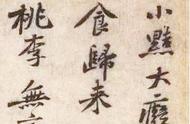 小黠大癡
食歸来
桃李無